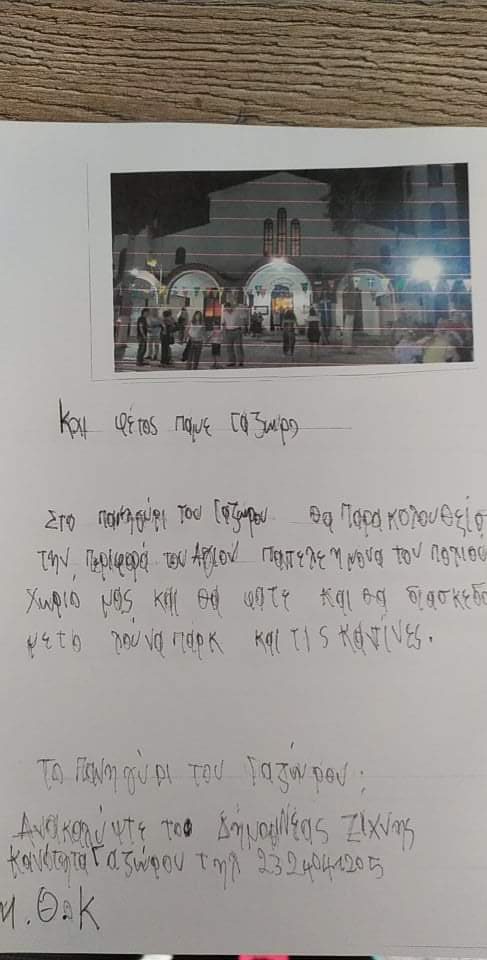 Και φέτος παμε Γαζωρο
Στο πανηγύρι του Γαζώρου θα παρακολουθείσ
την περιφορά του Αγίου του πολιού
χωριό μας και θα φατε και θα διασκεδα
με το λούνα πάρκ και τις καντίνες.
Το πανηγύρι του Γαζώρου;
Ανακαλύψτε το Δήμο Νέας Ζίχνης
Γαζώρου τηλ 2324041205
Θ. Κ